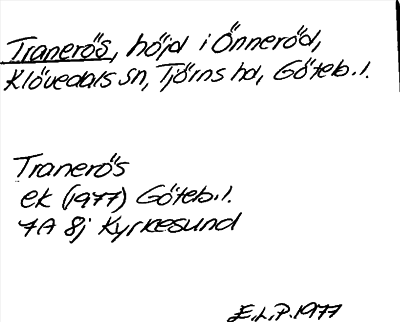 Tranerös, höjd i Önneröd,
Klövedals sn, Tjörns hd, Göteb. l.
Tranerös
ek (1977) Göteb. l.
7A 8j Kyrkesund
E.L.P. 1977